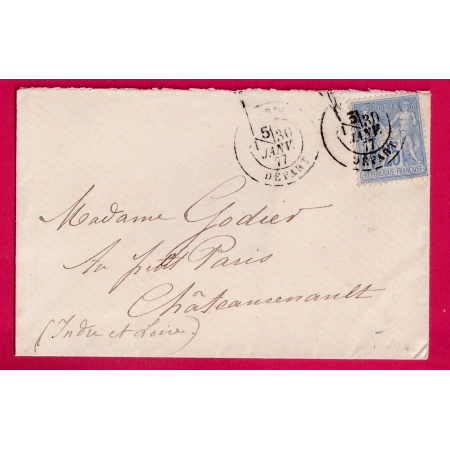 5
30
JANV.
77
DÉPART
5
30
JANV.
77
DÉPART
25
Madame Godier
Au petit Paris
Châteaurenault
(Indre et Loire)